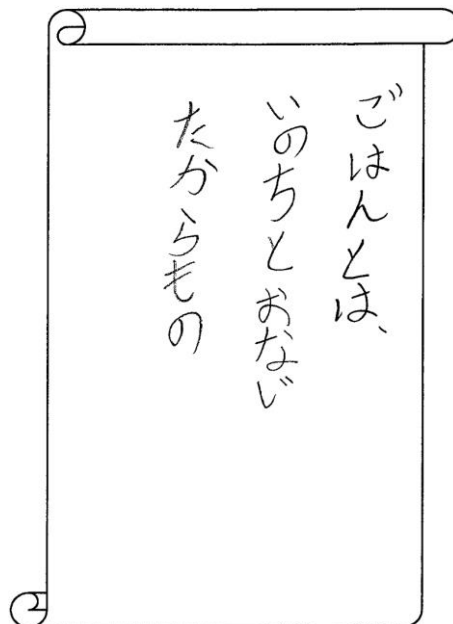 ごはんとは、
いのちとおなじ
たからもの